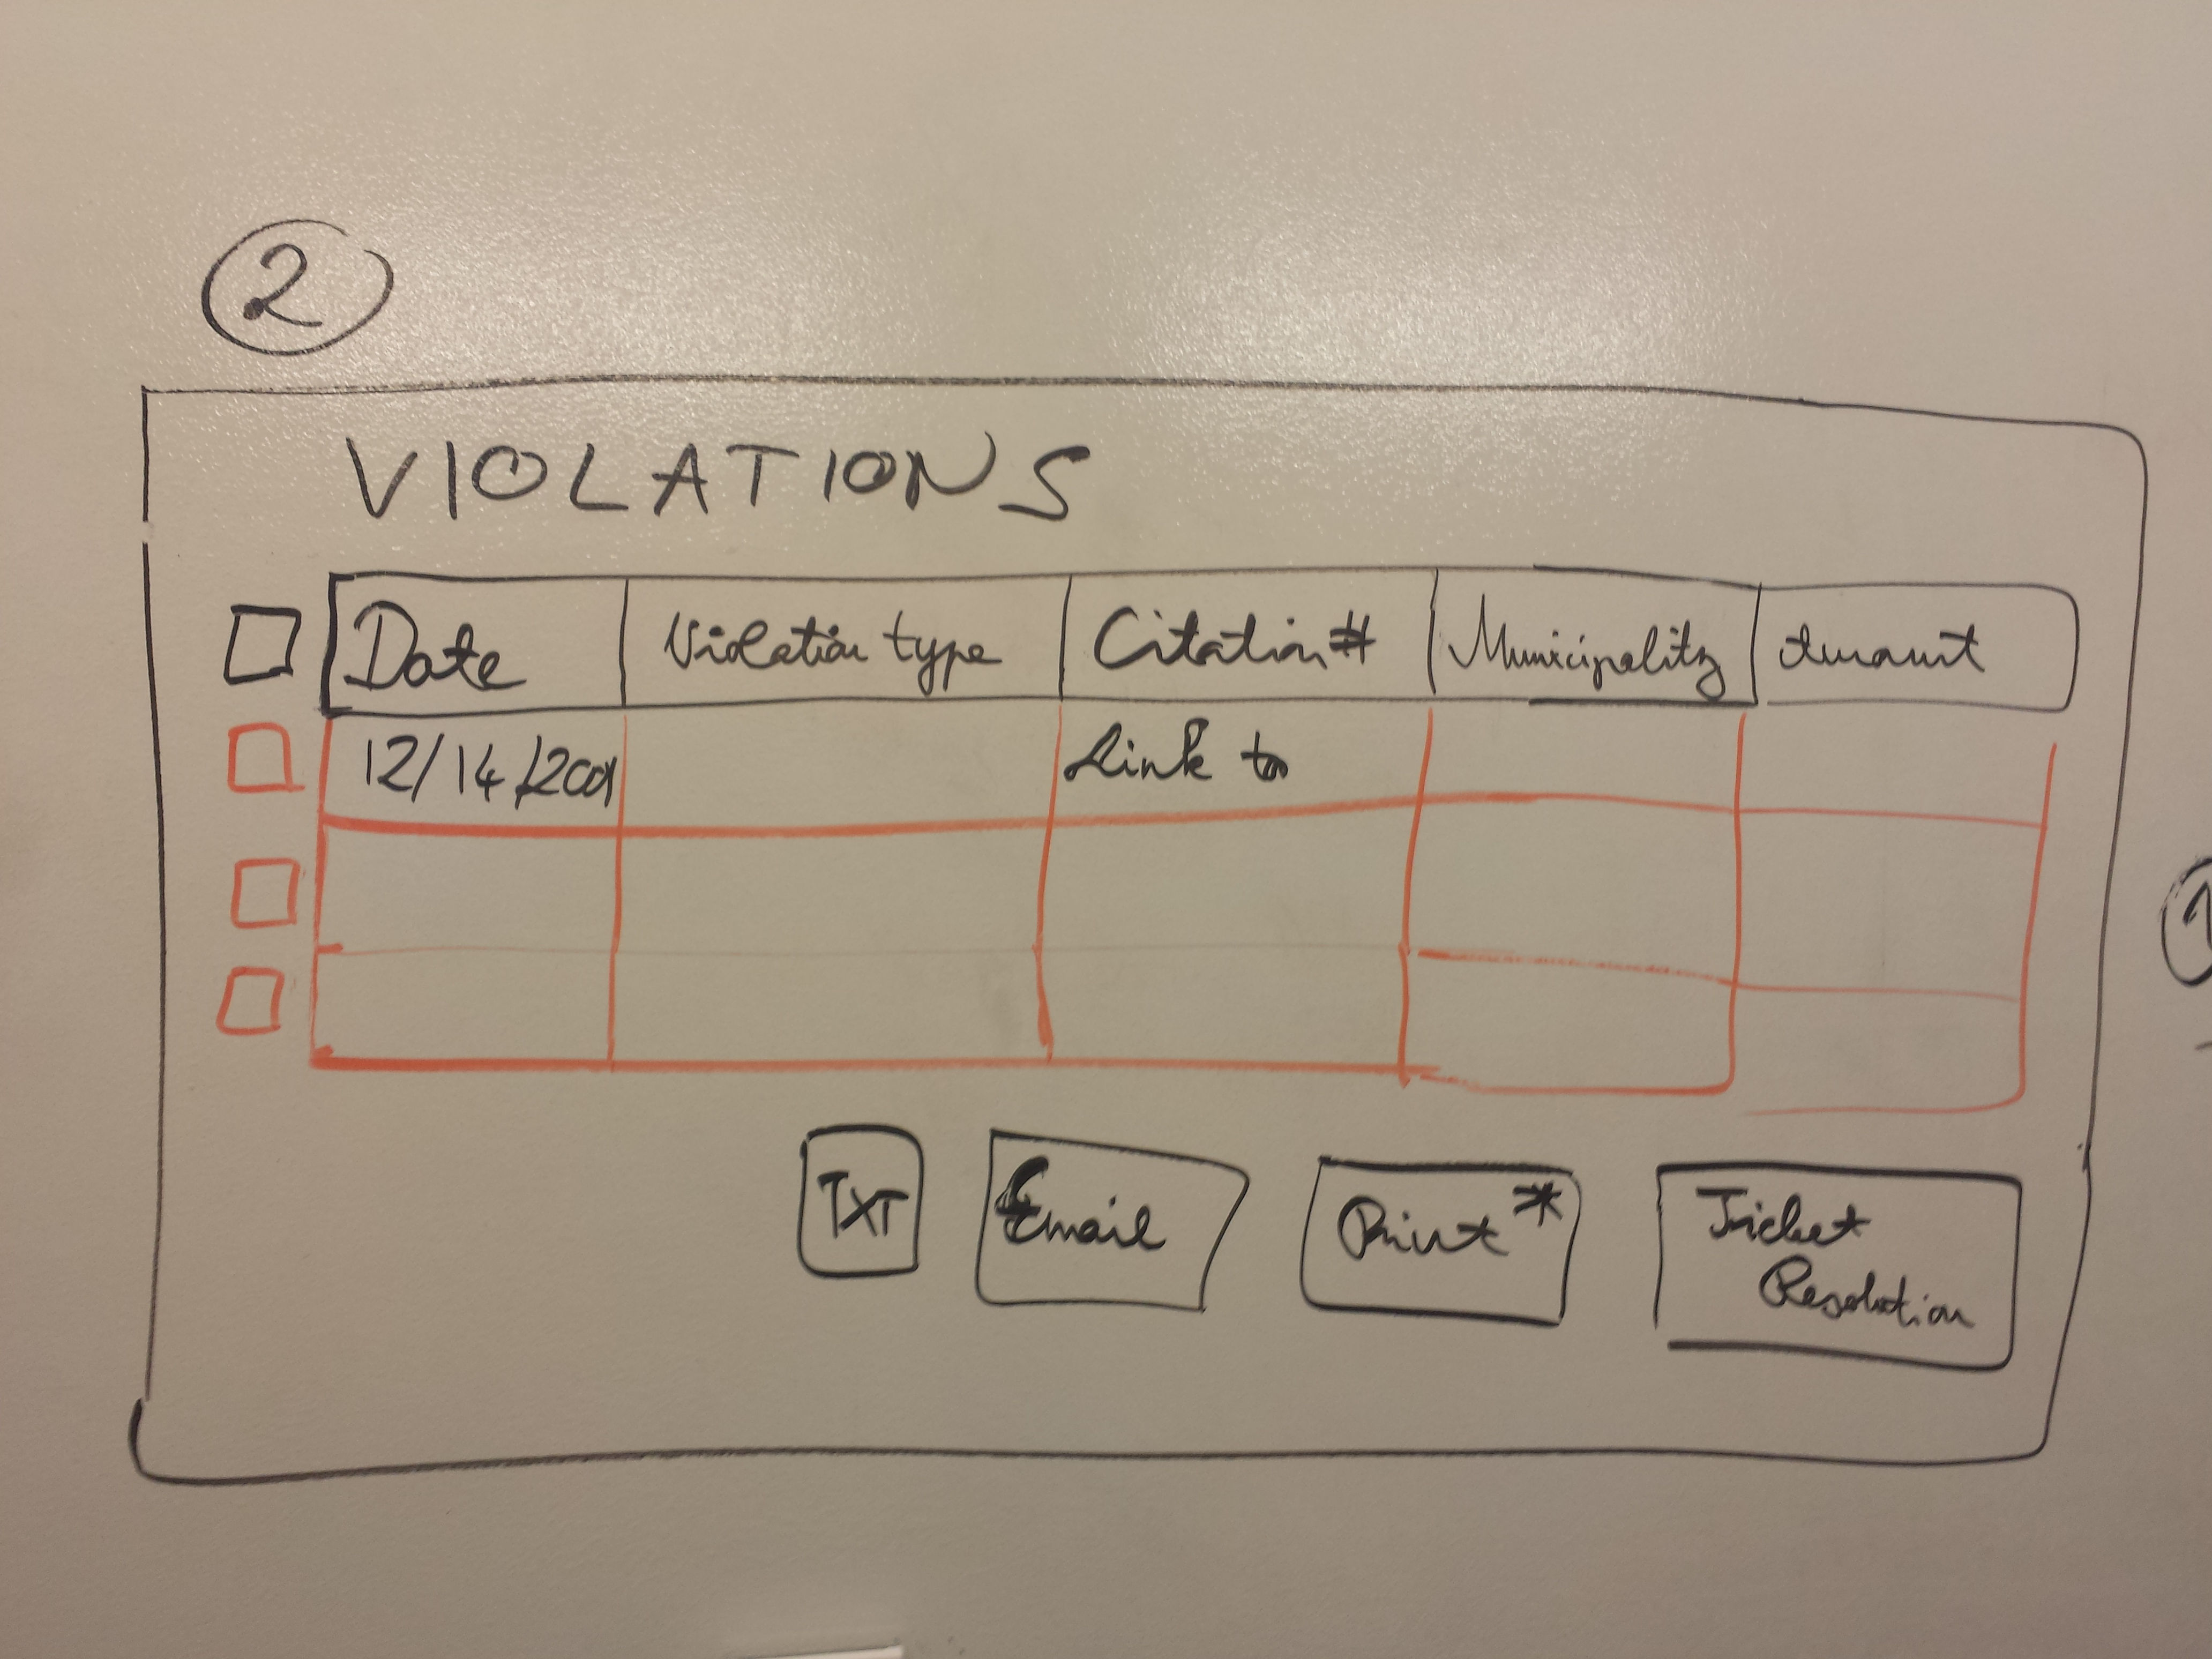 2
VIOLATIONS
Date Violation type Citation# Municipality Amount
12/14/2001 Link to
TXT Email Print* Ticket
Resolution
1